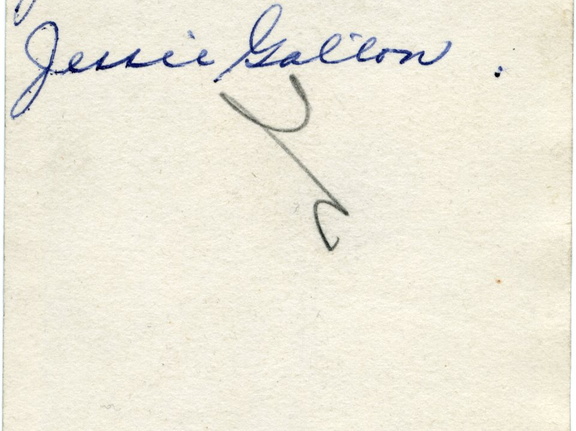 Jessie Galton .